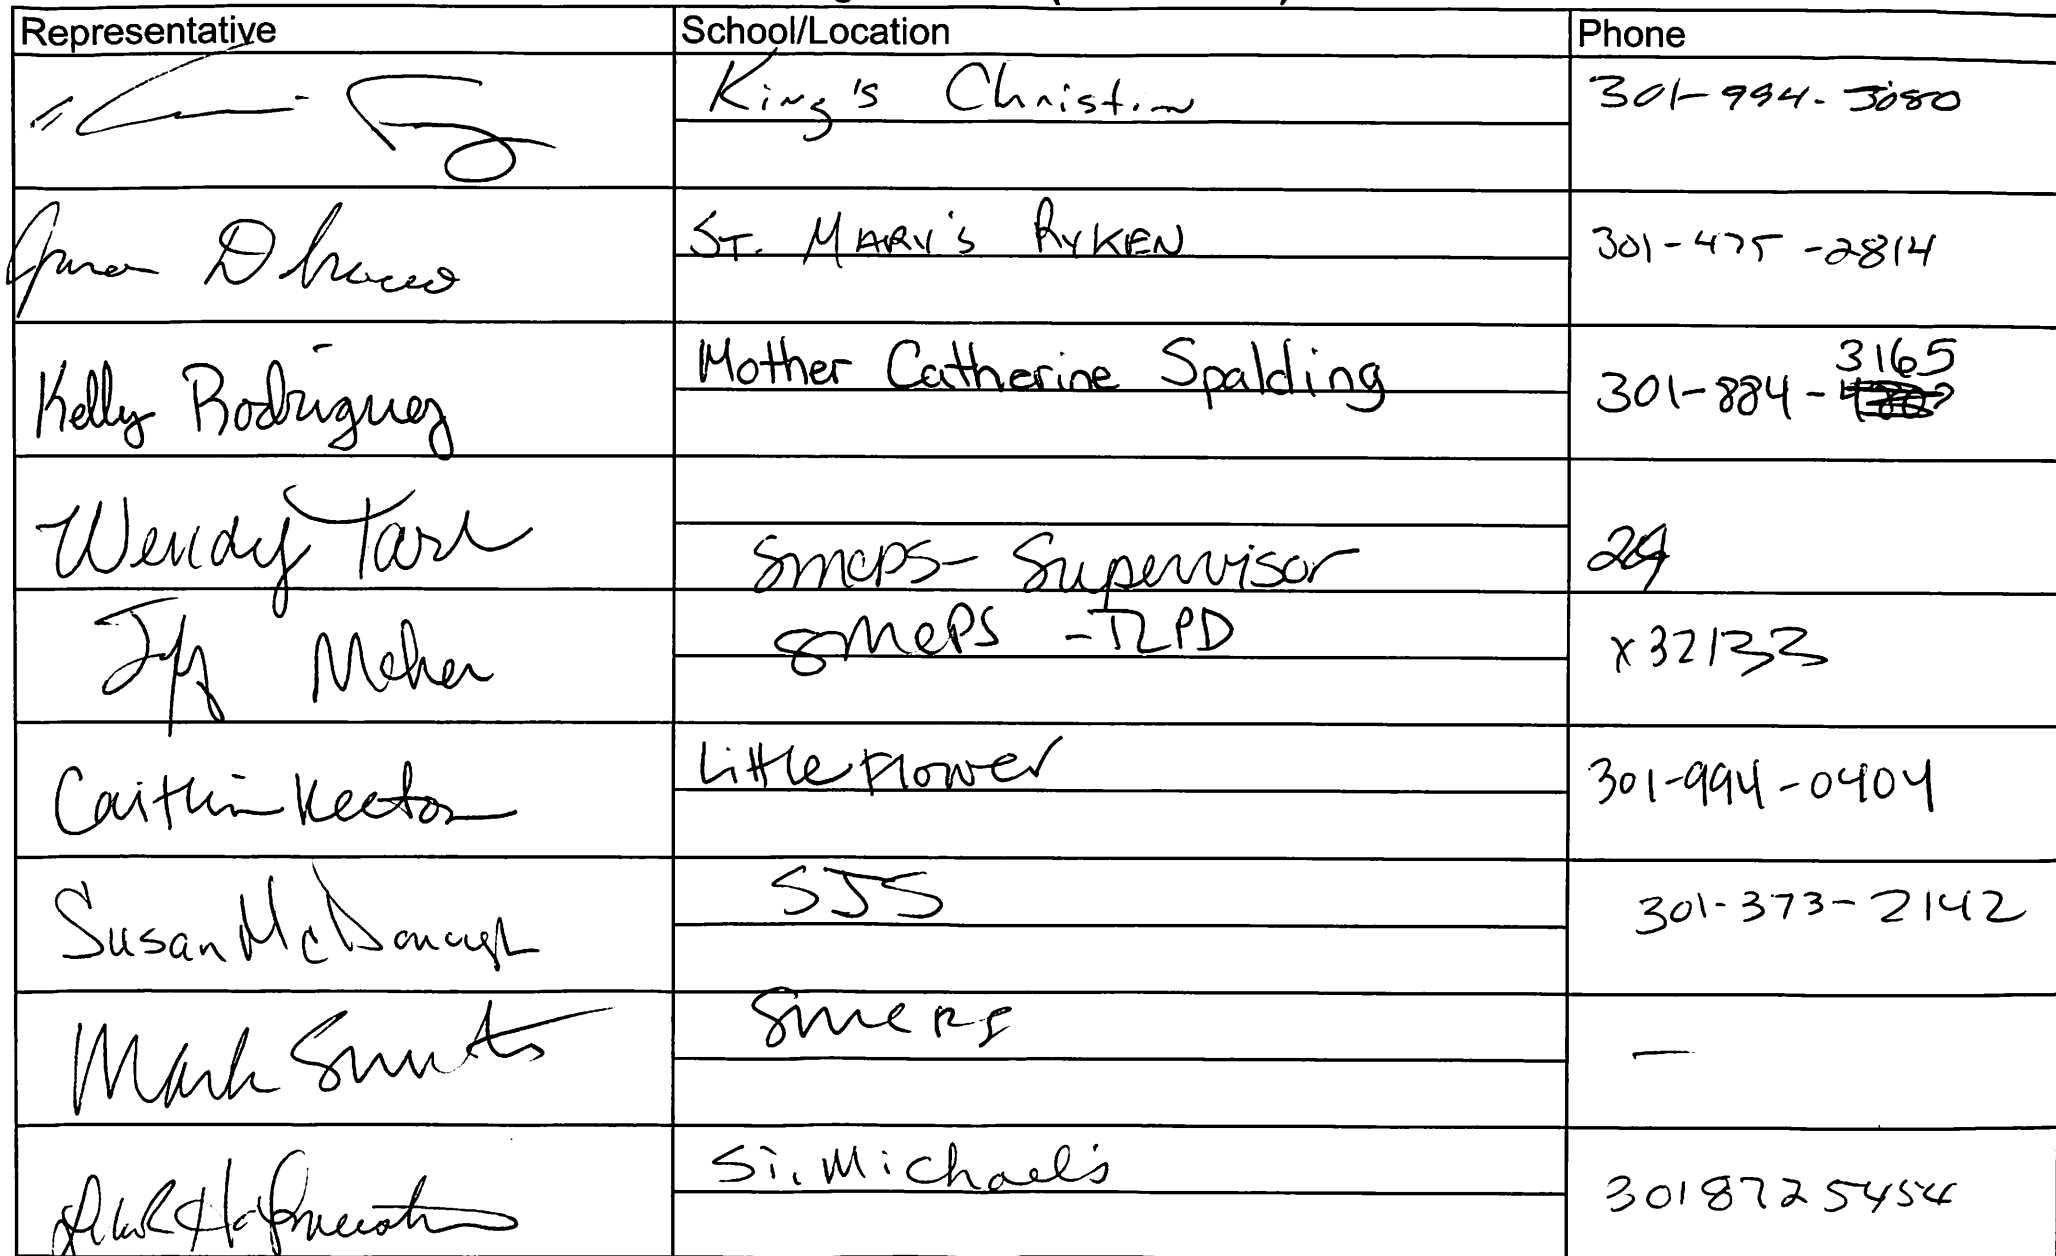 Representative School/Location Phone
King's Christian 301-994-3080
ST. MARY'S RYKEN 301-475-2814
Mother Catherine Spalding 3165
Kelly Rodriguez 301-884-
Wendy Tarr SMCPS- Supervisor 24
Maher SMCPS -TLPD x32133
Caitlin Keeton Little Flower 301-994-0404
Susan McDonough SJS 301-373-2142
Mark Smith SMCPS —
St. Michael's 3018725454